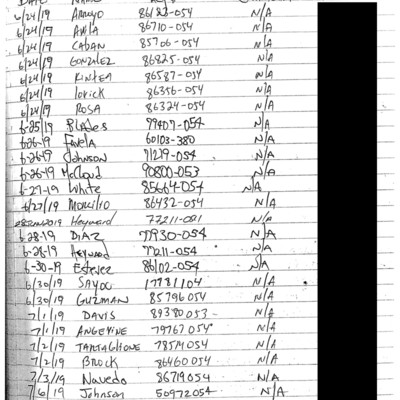 DATE NAME
6/24/19 ARROYO 86183-054 N/A
6/24/19 AVILA 86710-054 N/A
6/24/19 CABAN 85706-054 N/A
6/24/19 GONZALEZ 86825-054 N/A
6/24/19 86587-054 N/A
6/24/19 86356-054 N/A
6/24/19 ROSA 86324-054 N/A
6-25/19 Blades 77407-054 N/A
6-26-19 Favela 60103-380 N/A
6-26-19 Johnson 71219-054 N/A
6-26-19 McCloud 90800-053 N/A
6-27-19 White 85664-054 N/A
6/27/19 86432-054 N/A
28June2019 Heyward 77211-081 N/A
6-28-19 DIAZ 77930-054 N/A
6-28-19 Heyward 77211-054 N/A
6-30-19 Estevez 86102-054 N/A
6/30/19 SAYOC 17781104 N/A
6/30/19 GUZMAN 85796054 N/A
7/1/19 DAVIS 89380053 N/A
7/1/19 ANGEVINE 79767054 N/A
7/2/19 TARTAGLIONE 78514054 N/A
7/2/19 BROCK 86460054 N/A
7/3/19 Navedo 86719054 N/A
7/6/19 Johnson 50972054 N/A